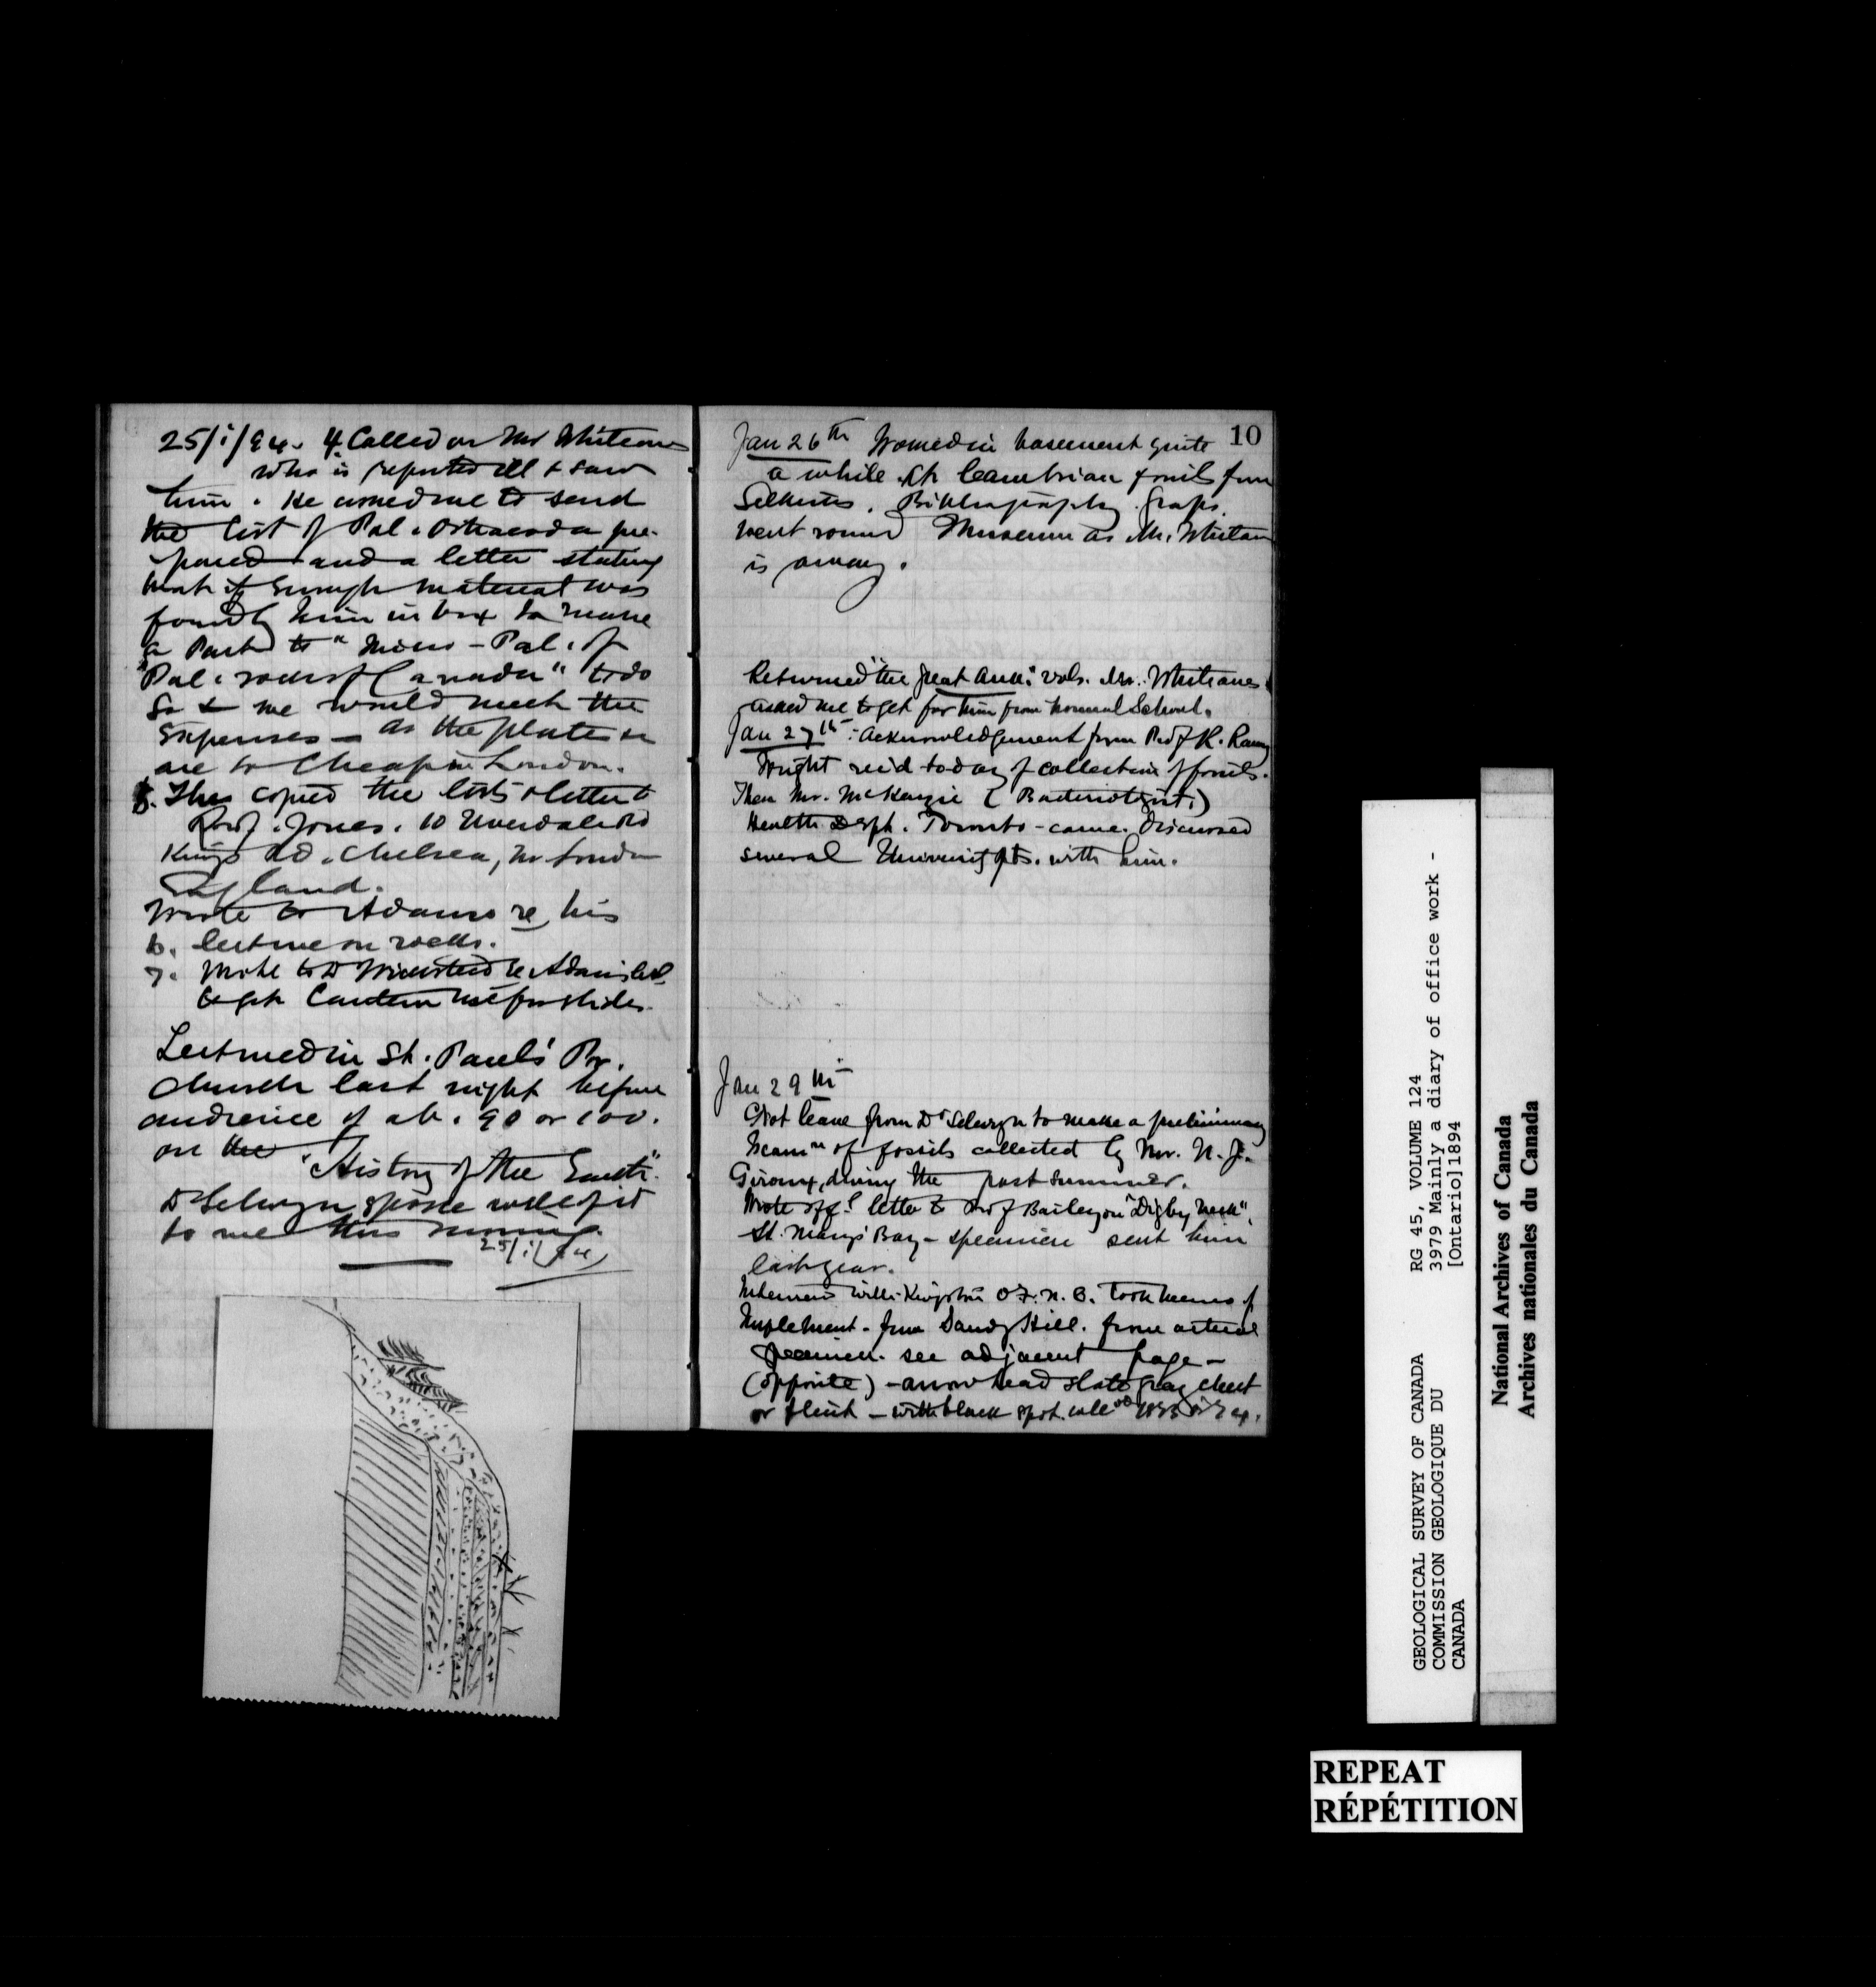 25/i/94. 4. Called on Mr Whiteaves
who is reported ill & saw
him. He asked me to send
the list of Pal. Ostracoda pre-
pared and a letter stating
that if enough material was
found by him in box to make
a Part to "Micro-Pal. of
Pal. rocks of Canada" to do
so & we would meet the
expenses — as the plates
are so cheap in London.
5. Thus copied the lists & letter to
Prof. Jones. 10 Uverdale Rd
Kings Rd. Chelsea, London
England.
Wrote to Adams re his
6. lecture on rocks.
7. Wrote to Dr re Adams' lect.
to get lantern for slides.
Lectured in St. Paul's Pr.
Church last night before
audience of ab. 90 or 100.
on the "History of the Earth".
Dr Selwyn spoke well of it
to me this morning.
25/i/94
10
Jan 26th Worked in basement quite
a while at Cambrian fossils from
Selkirks. Bibliography Graps.
Went round Museum as Mr. Whiteaves
is away.
Returned "the great Auk" vols. Mr. Whiteaves
asked me to get for him from Normal School.
Jan 27th: Acknowledgement from Prof R. Ramsay
Wright rec'd today of collection of fossils.
Then Mr. McKenzie (Bacteriologist)
Health Dept. Toronto - came. Discussed
several University pts. with him.
Jan 29th
Got leave from Dr Selwyn to make a preliminary
Exam'n of fossils collected by Mr. N. J.
Giroux, during the past summer.
Wrote off'l letter to Prof Bailey on "Digby Neck",
St. Mary's Bay - specimens sent him
last year.
Interview with Kingston O.F.N.C. Took memo of
Implement - from Sandy Hill. from actual
specimen. see adjacent page -
(opposite) - arrow head slate gray chert
or flint - with black spot.
GEOLOGICAL SURVEY OF CANADA
COMMISSION GEOLOGIQUE DU
CANADA
RG 45, VOLUME 124
3979 Mainly a diary of office work -
[Ontario]1894
National Archives of Canada
Archives nationales du Canada
REPEAT
RÉPÉTITION